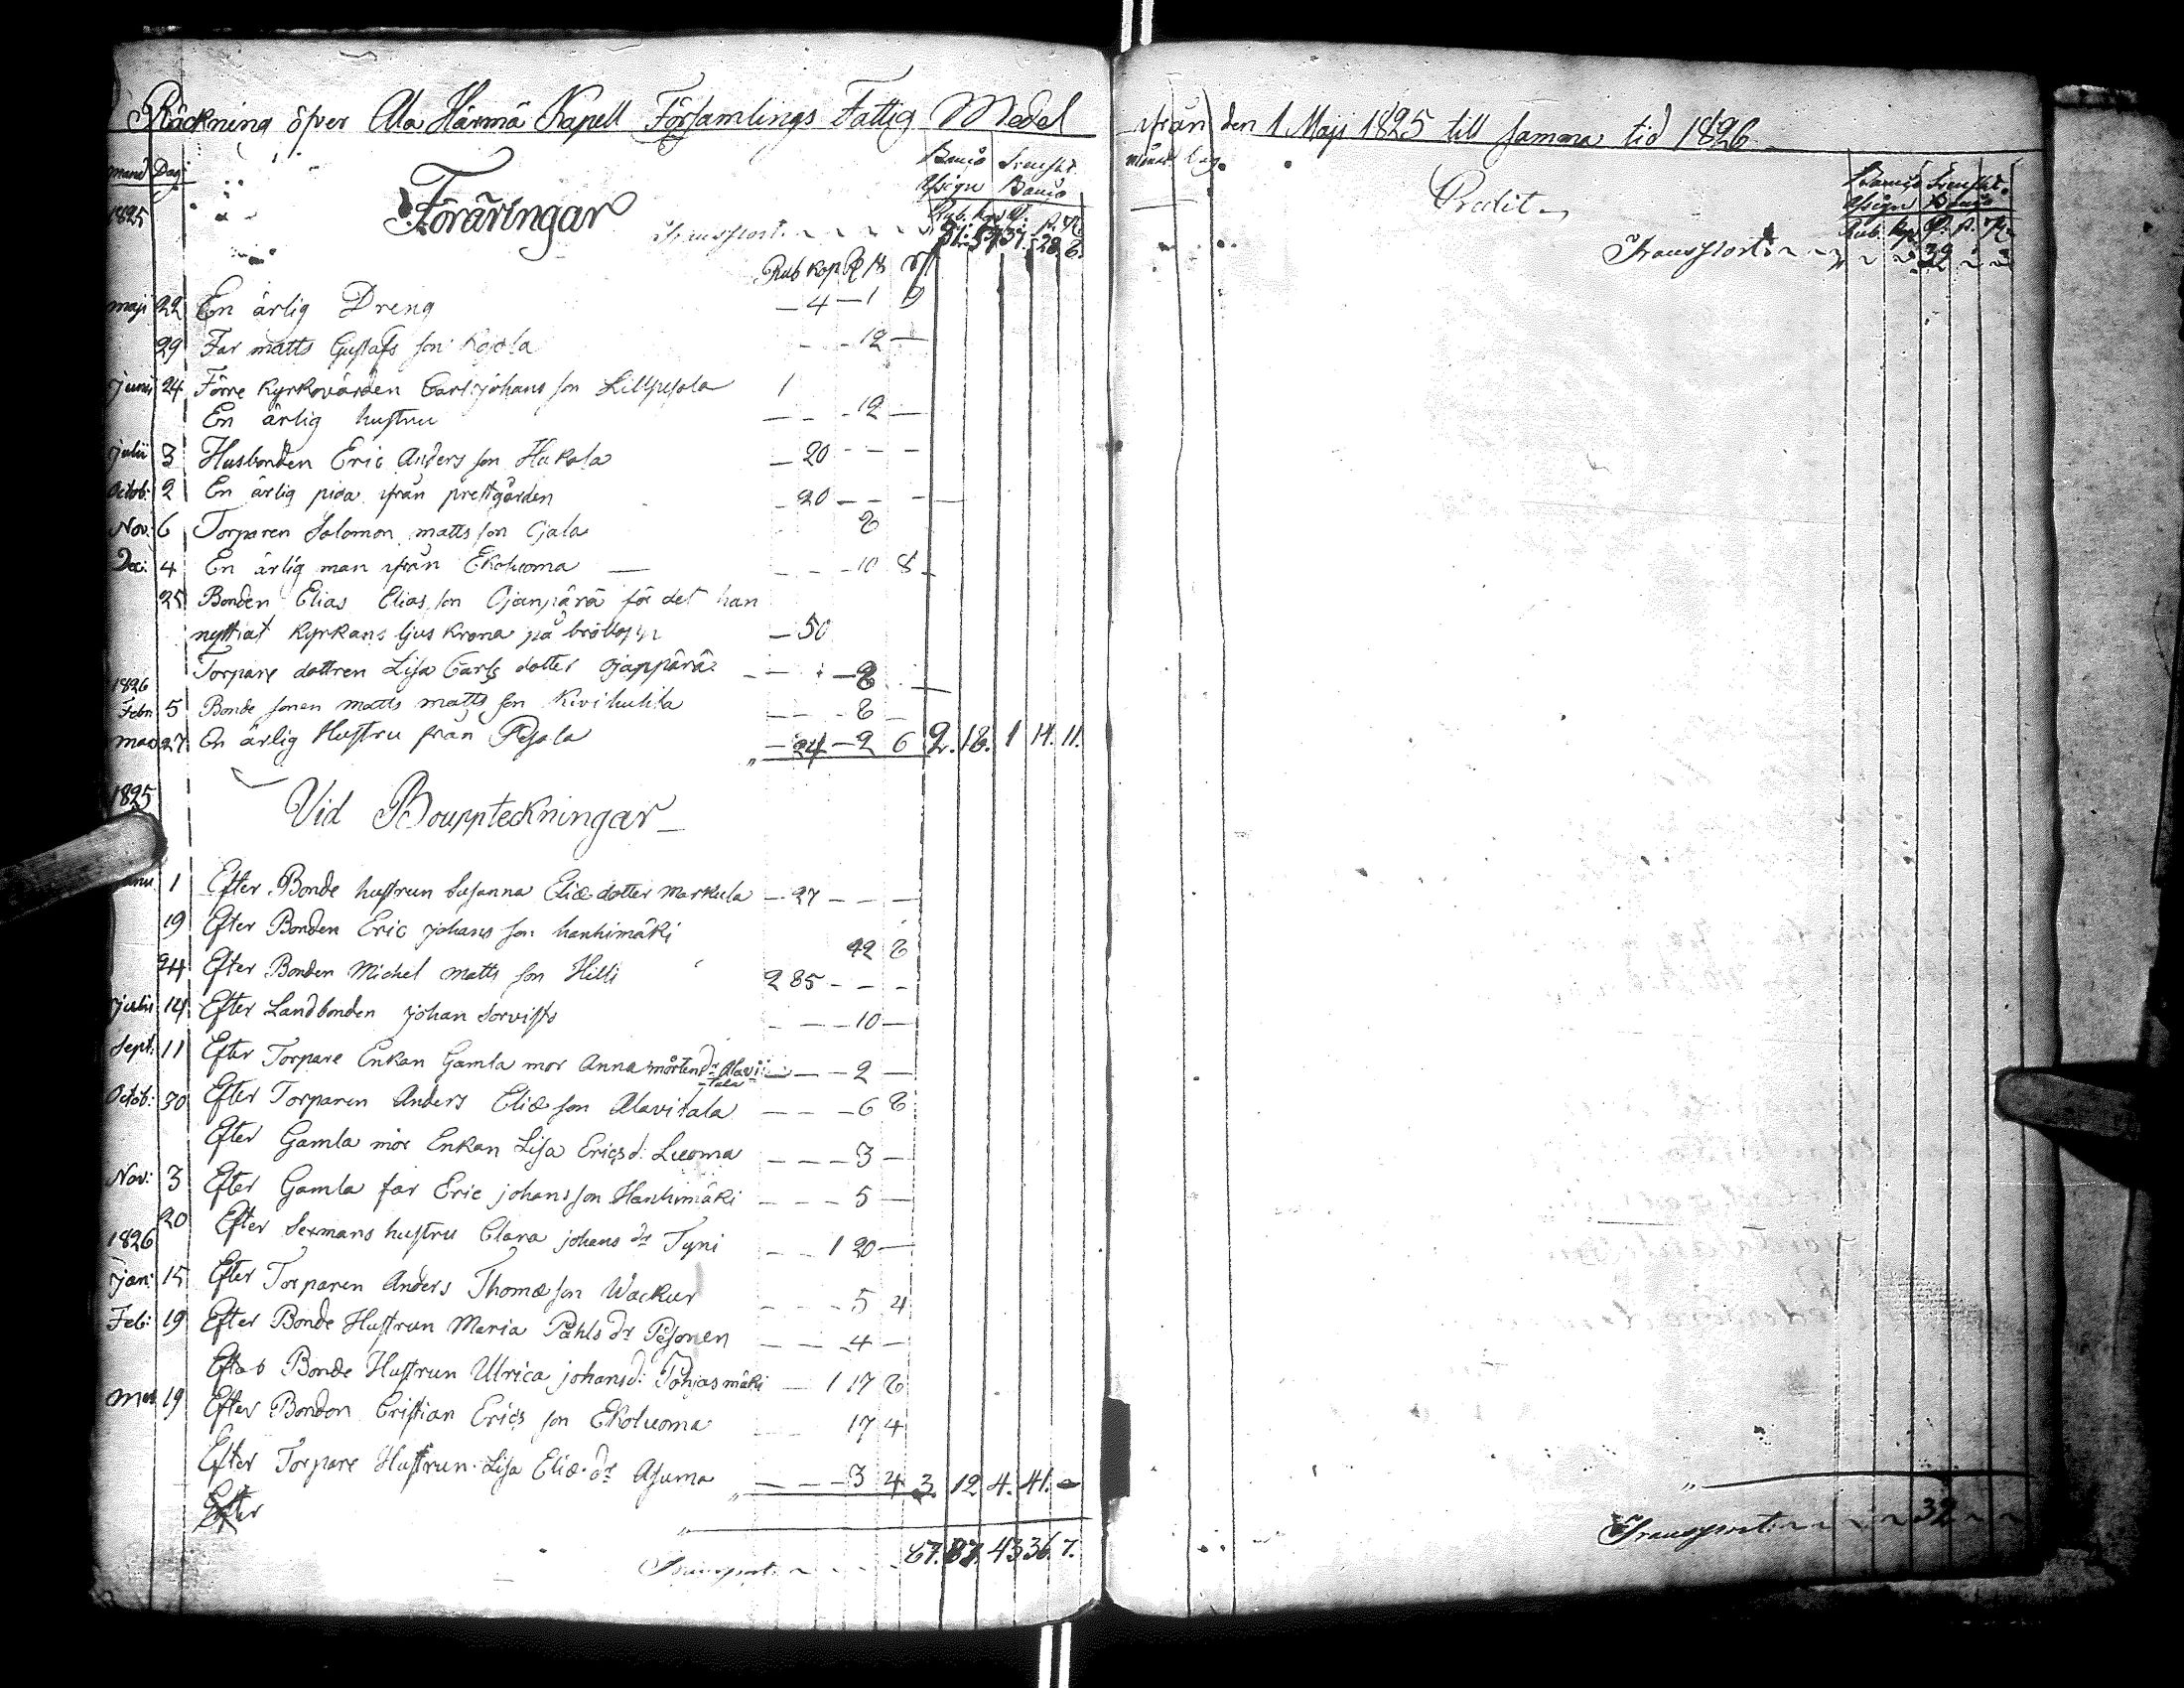 Räckning öfver Ala Härmä Kapell Församlings Fattig Medel
Månad Dag
Banco Svenskt
Assign Banco
1825 Föräringar
Rub. Kop R. s. rst
Transport 81. 59 37. 28. 6.
Rub Kop R s rst
maji 22 En ärlig Dreng — 4 — 1 9
29 Far matts Gustafs son Kojola - - 12 —
Junii 24 Förre Kyrkovärden Carl Johans son Lillpesola 1
En ärlig hustru — - - 12 —
Julii 3 Husbonden Eric Anders son Hukala — 20 - - -
Octob: 2 En ärlig piga ifrån prestgården - 20 — — -
Nov: 6 Torparen Salomon matts son Ojala 8
Dec: 4 En ärlig man ifrån Ekoluoma — - - - 10 8
25 Bonden Elias Elias son Ojanpärä för det han
nyttiat Kyrkans ljus krona på bröllopp — 50
Torpare dottren Lisa Carls dotter Ojanpärä - — - — 8 - —
1826
Febr 5 Bonde sonen Matts matts son Kivihuhta — — - 8 —
mars 27 En ärlig Hustru från Pesola — 24 — 2 6 2. 18. 1 14. 11.
1825
Vid Bouppteckningar
1 Efter Bonde hustrun Susanna Eliæ dotter Markula — 27 — — —
19 Efter Bonden Eric Johans son hanhimäki 42 8
24 Efter Bonden Michel Matts son Hilli 2 85 - - -
Julii 14 Efter Landbonden Johan Sorvisto - — — 10 —
Sept: 11 Efter Torpare Enkan Gamla mor Anna Mårtens dr Alavi- — — — 2 —
tala
Octob: 30 Efter Torparen Anders Eliæ son Alavitala — — — 6 8
Efter Gamla mor Enkan Lisa Erics d: Luoma — — — 3 —
Nov: 3 Efter Gamla far Eric Johans son Hanhimäki — — - 5 —
20 Efter Sexmans hustru Clara Johans dr Tyni — — 1 20 —
1826
Jan: 15 Efter Torparen Anders Thomæ son Wackur — - - 5 4
Feb: 19 Efter Bonde Hustrun Maria Påhls dr Pesonen — — — 4 —
Efter Bonde Hustrun Ulrica Johans d: Pohjasmäki — 1 17 8
Mars 19 Efter Bonden Cristian Erics son Ekoluoma — 17 4
Efter Torpare Hustrun Lisa Eliæ dr Asuma — — — 3 4 3. 12 4. 41. -
Efter
Transport 87. 87. 43 36. 7.
ifrån den 1 Maji 1825 till samma tid 1826
Månad Dag
Credit
Banco Svenskt
Assign Banco
Rub. Kop R. s. rst
Transport 32
Transport 32